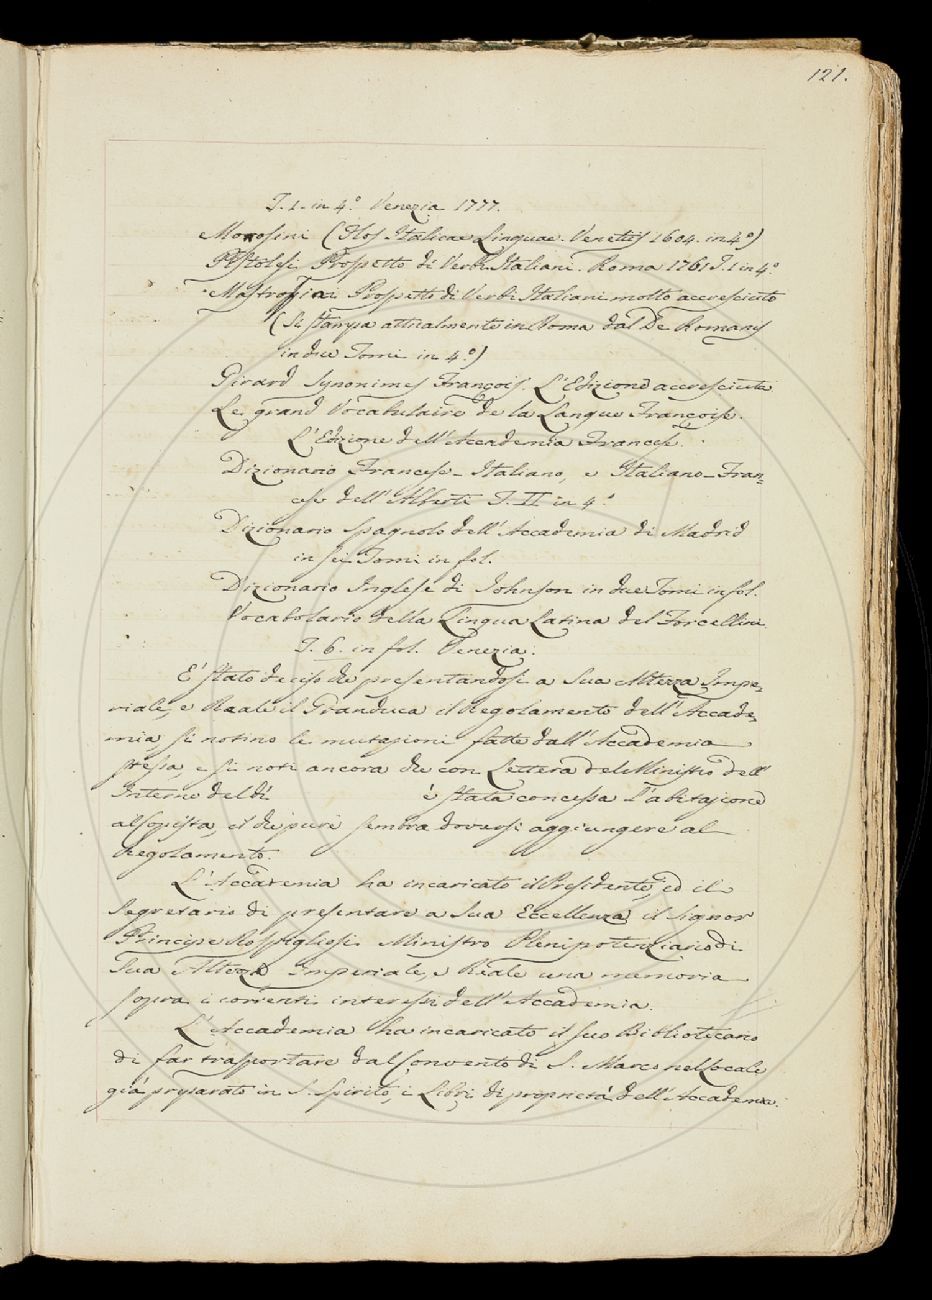 121.
T. 1. in 4.º Venezia 1777.
Morosini (Flos Italicae Linguae. Venetiis 1604. in 4.º)
Pistolesi Prospetto di Verbi Italiani. Roma 1761 T. 1 in 4.º
Mastrofini Prospetto di Verbi Italiani molto accresciuto
(Si stampa attualmente in Roma dal De Romanis
in due Tomi in 4.º)
Girard Synonimes François. L'Edizione accresciuta
Le grand Vocabulaire de la Langue Françoise.
L'Edizione dell'Accademia Francese.
Dizionario Francese-Italiano, e Italiano-Fran=
cese dell'Alberti T. II in 4.º
Dizionario Spagnolo dell'Accademia di Madrid
in sei Tomi in fol.
Dizionario Inglese di Johnson in due Tomi in fol.
Vocabolario della Lingua Latina del Forcellini
T. 6. in fol. Venezia.
E' stato deciso che presentandosi a Sua Altezza Impe=
riale, e Reale il Granduca il Regolamento dell'Accade=
mia, si notino le mutazioni fatte dall'Accademia
stessa, e si noti ancora che con Lettera del Ministro dell'
Interno del dì è stata concessa l'abitazione
al Copista, il che pure sembra doversi aggiungere al
Regolamento.
L'Accademia ha incaricato il Presidente, ed il
Segretario di presentare a Sua Eccellenza il Signor
Principe Rospigliosi Ministro Plenipotenziario di
Sua Altezza Imperiale, e Reale una memoria
sopra i correnti interessi dell'Accademia.
L'Accademia ha incaricato il suo Bibliotecario
di far trasportare dal Convento di S. Marco nel Locale
già preparato in S. Spirito, i Libri di proprietà dell'Accademia.